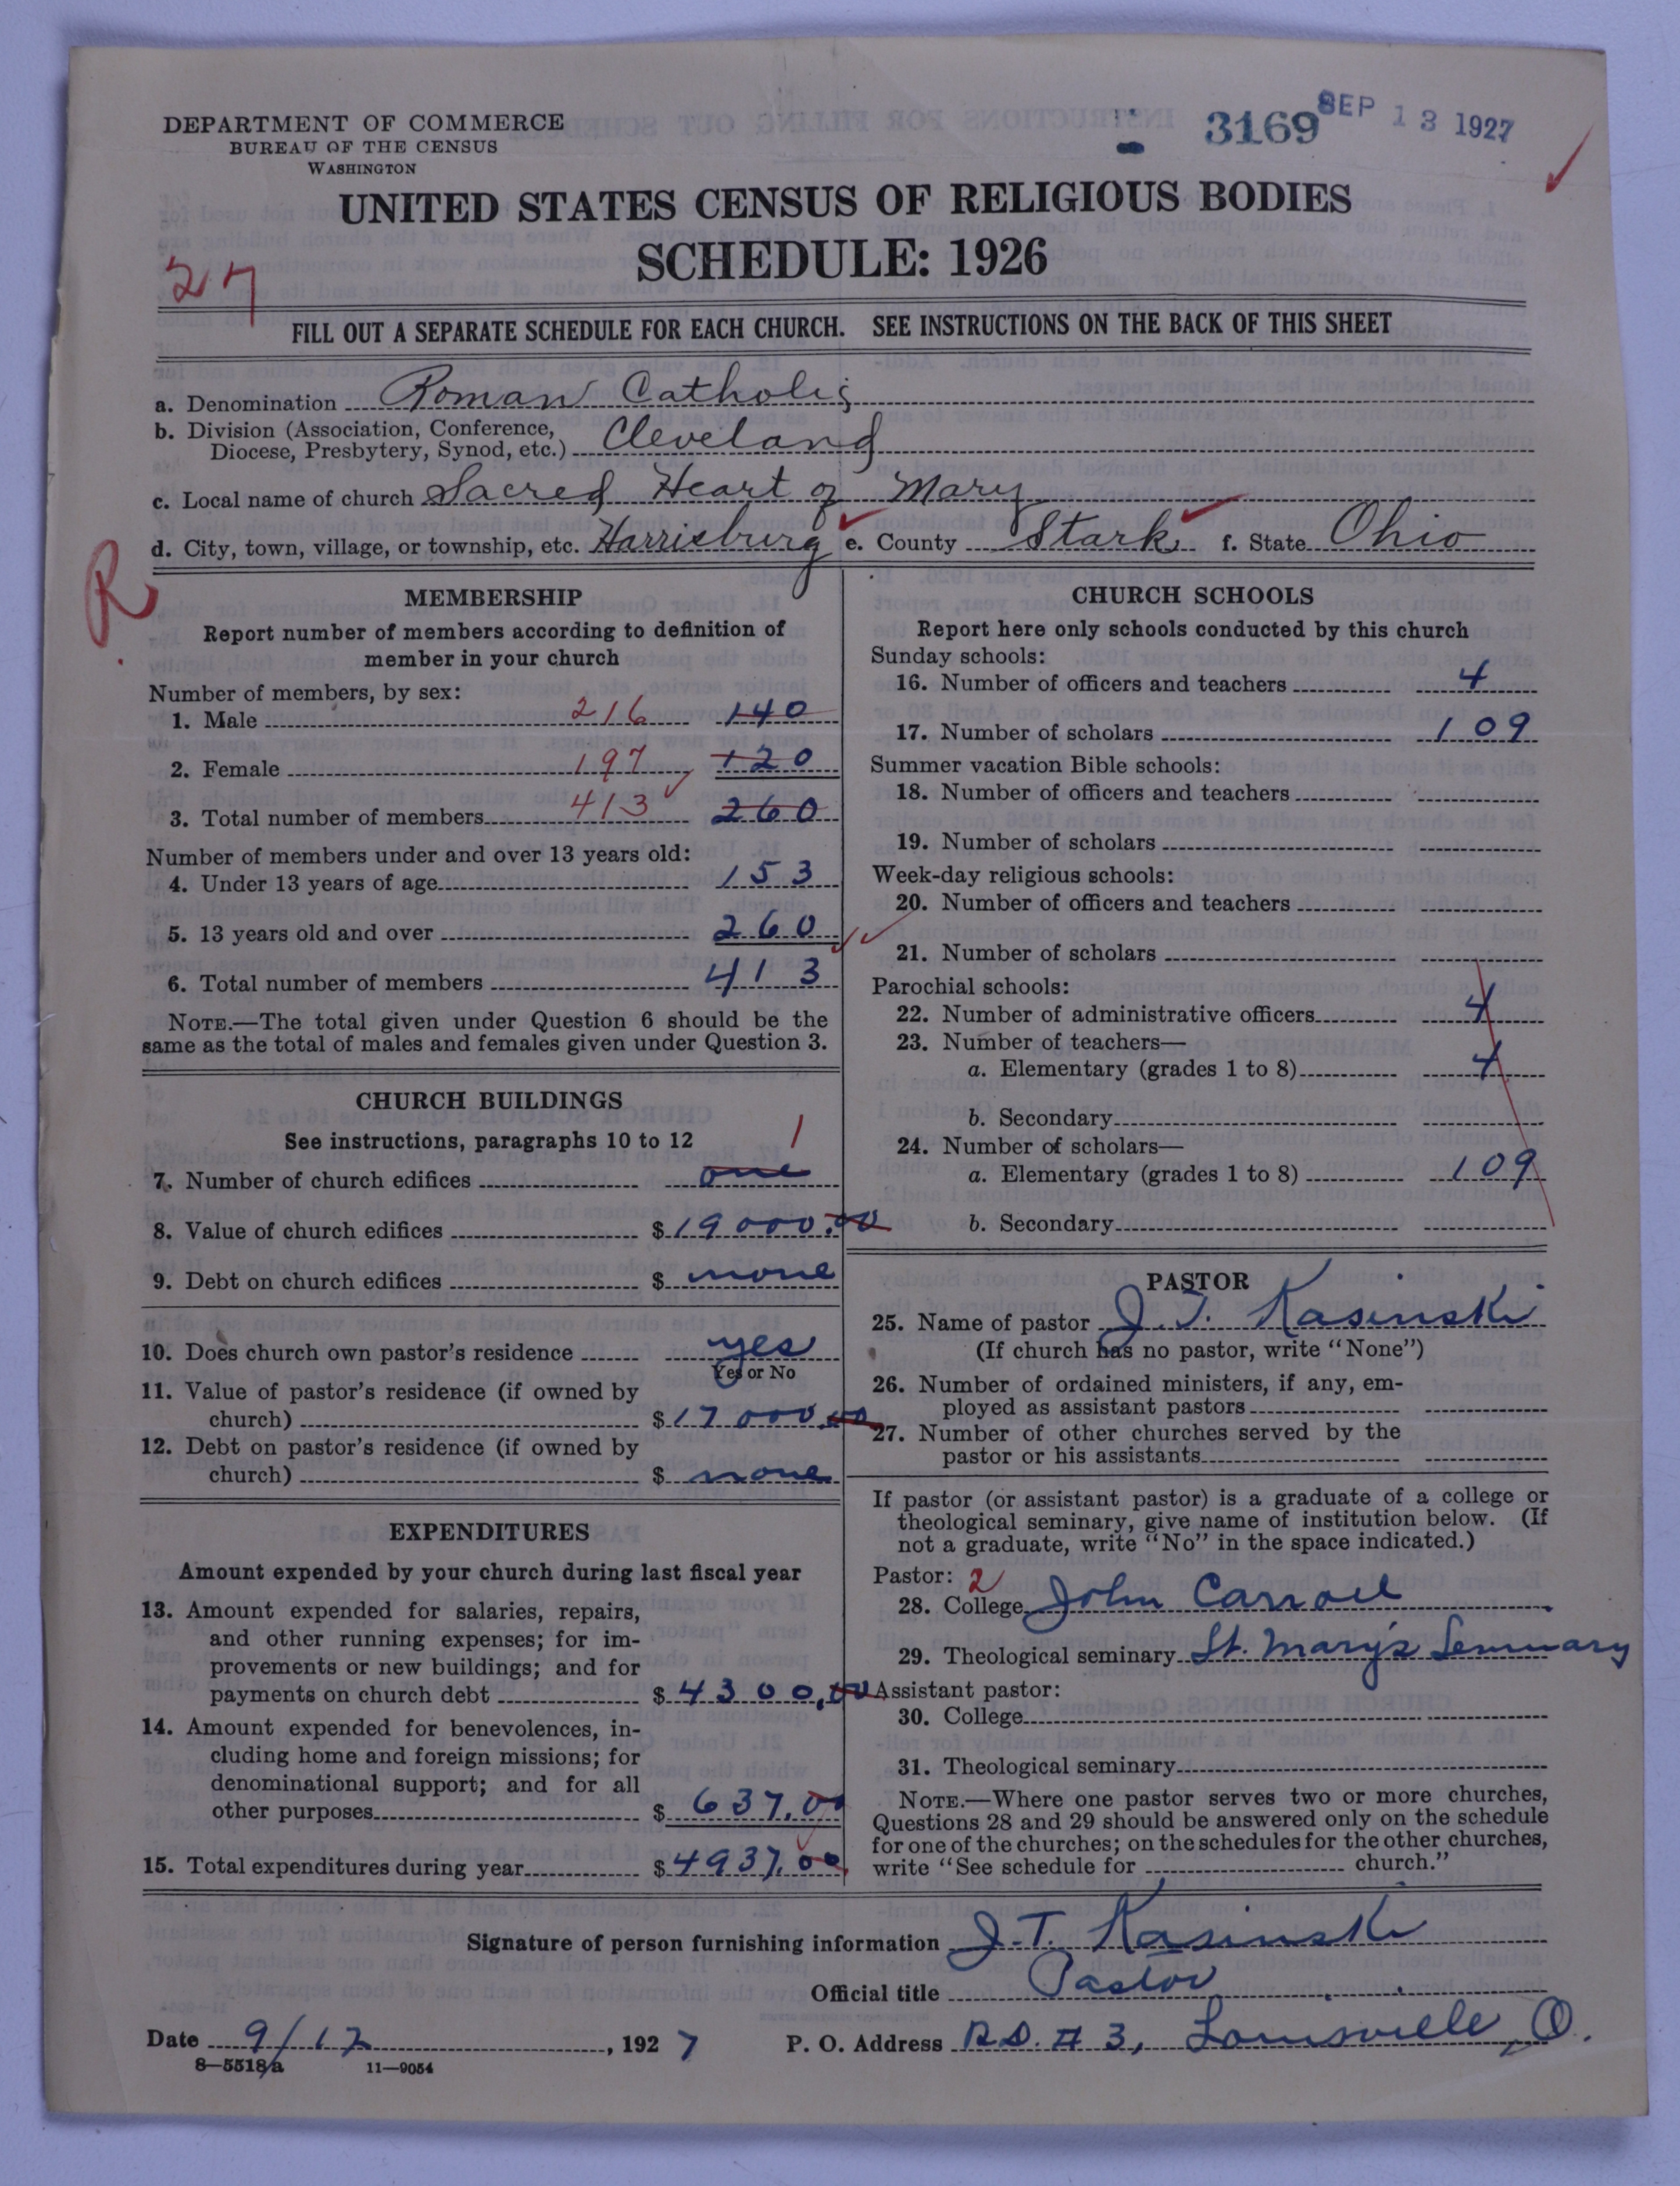 DEPARTMENT OF COMMERCE
BUREAU OF THE CENSUS
WASHINGTON
3169
SEP 13 1927
UNITED STATES CENSUS OF RELIGIOUS BODIES
SCHEDULE: 1926
27
FILL OUT A SEPARATE SCHEDULE FOR EACH CHURCH. SEE INSTRUCTIONS ON THE BACK OF THIS SHEET
a. Denomination Roman Catholic
b. Division (Association, Conference,
Diocese, Presbytery, Synod, etc.) Cleveland
c. Local name of church Sacred Heart of Mary
d. City, town, village, or township, etc. Harrisburg e. County Stark f. State Ohio
R
MEMBERSHIP
Report number of members according to definition of
member in your church
Number of members, by sex:
1. Male 216 140
2. Female 197 120
3. Total number of members 413 260
Number of members under and over 13 years old:
4. Under 13 years of age 153
5. 13 years old and over 260
6. Total number of members 413
NOTE.—The total given under Question 6 should be the
same as the total of males and females given under Question 3.
CHURCH BUILDINGS
See instructions, paragraphs 10 to 12
1
7. Number of church edifices one
8. Value of church edifices $19000.00
9. Debt on church edifices $ none
10. Does church own pastor's residence yes
Yes or No
11. Value of pastor's residence (if owned by
church) $17000.00
12. Debt on pastor's residence (if owned by
church) $ none
EXPENDITURES
Amount expended by your church during last fiscal year
13. Amount expended for salaries, repairs,
and other running expenses; for im-
provements or new buildings; and for
payments on church debt $4300.00
14. Amount expended for benevolences, in-
cluding home and foreign missions; for
denominational support; and for all
other purposes $637.00
15. Total expenditures during year $4937.00
CHURCH SCHOOLS
Report here only schools conducted by this church
Sunday schools:
16. Number of officers and teachers 4
17. Number of scholars 109
Summer vacation Bible schools:
18. Number of officers and teachers
19. Number of scholars
Week-day religious schools:
20. Number of officers and teachers
21. Number of scholars
Parochial schools:
22. Number of administrative officers 4
23. Number of teachers—
a. Elementary (grades 1 to 8) 4
b. Secondary
24. Number of scholars—
a. Elementary (grades 1 to 8) 109
b. Secondary
PASTOR
25. Name of pastor J. T. Kasinski
(If church has no pastor, write "None")
26. Number of ordained ministers, if any, em-
ployed as assistant pastors
27. Number of other churches served by the
pastor or his assistants
If pastor (or assistant pastor) is a graduate of a college or
theological seminary, give name of institution below. (If
not a graduate, write "No" in the space indicated.)
Pastor: 2
28. College John Carroll
29. Theological seminary St. Mary's Seminary
Assistant pastor:
30. College
31. Theological seminary
NOTE.—Where one pastor serves two or more churches,
Questions 28 and 29 should be answered only on the schedule
for one of the churches; on the schedules for the other churches,
write "See schedule for church."
Signature of person furnishing information J. T. Kasinski
Official title Pastor
Date 9/12, 1927 P. O. Address R.D. # 3, Louisville, O.
8—5518a 11—9054